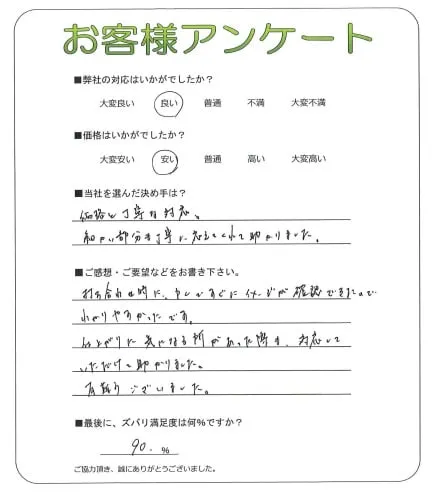 お客様アンケート
■弊社の対応はいかがでしたか？
大変良い 良い 普通 不満 大変不満
■価格はいかがでしたか？
大変安い 安い 普通 高い 大変高い
■当社を選んだ決め手は？
価格と丁寧な対応。
細かい部分も丁寧に応えてくれて助かりました。
■ご感想・ご要望などをお書き下さい。
打ち合わせ時に、すぐにイメージが確認できたので
わかりやすかったです。
仕上がりに気になる所があった際も、対応して
いただけて助かりました。
有難うございました。
■最後に、ズバリ満足度は何％ですか？
90. ％
ご協力頂き、誠にありがとうございました。